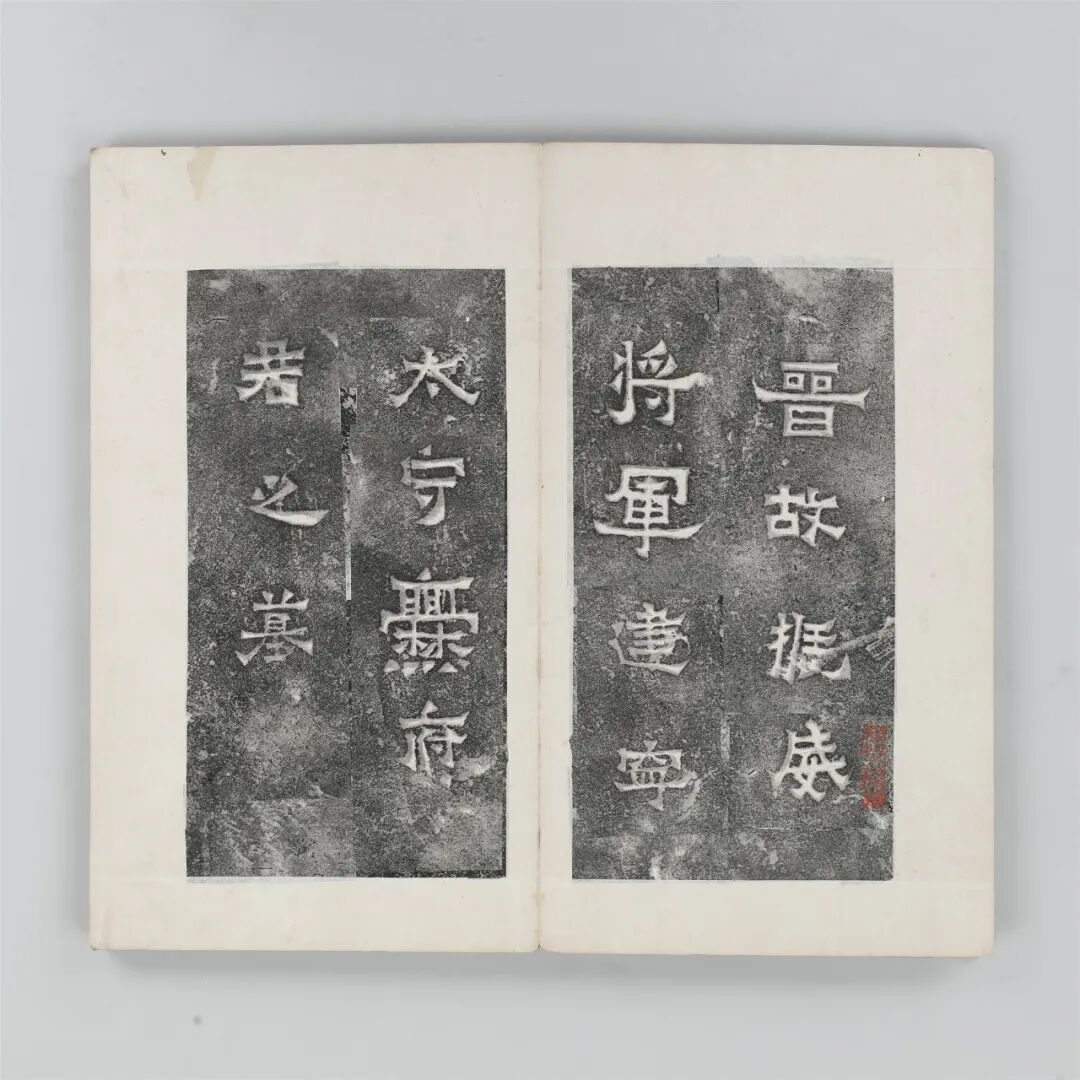 晉故振威
將軍建寧
太守爨府
君之墓